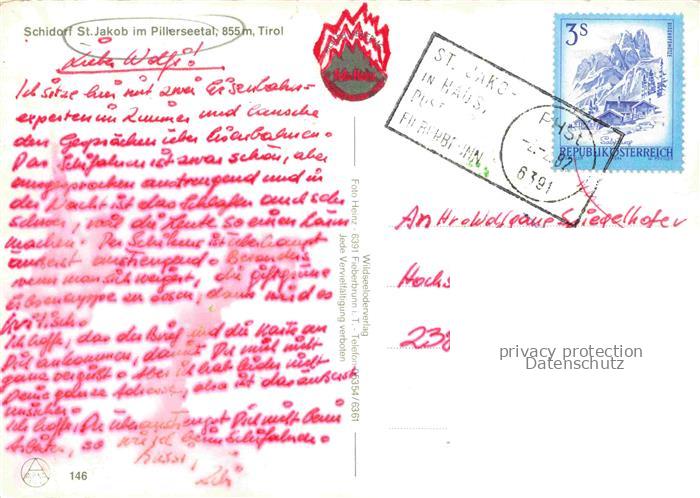 Schidorf St. Jakob im Pillerseetal, 855 m, Tirol
Lieber Wolfi!
Ich sitze hier mit zwei Eisenbahn-
experten im Zimmer und lausche
den Gesprächen über Eisenbahnen.
Das Schifahren ist zwar schön, aber
ausgesprochen anstrengend und in
der Nacht ist das Schlafen auch sehr
schwer, weil die Leute so einen Lärm
machen. Der Schikurs ist überhaupt
äußerst anstrengend. Besonders
wenn man sich weigert, die giftgrüne
Erbsensuppe zu essen, dann wird es
kritisch.
Ich hoffe, das der Brief und die Karte an
Dich ankommen, damit Du mich nicht
ganz vergißt. Aber ich hab leider nicht
Deine ganze Adresse, also ist das äußerst
unsicher.
Ich hoffe, Du überanstrengst Dich nicht beim
Arbeiten, so wie ich beim Schifahren.
Bussi,
146
Foto Heinz - 6391 Fieberbrunn i. T. - Telefon 05354/6361
Wildseeloderverlag
Jede Vervielfältigung verboten
ST. JAKO
IN HAUS,
POST
FIEBERBRUNN
6391
3 S
REPUBLIK ÖSTERREICH
An Hr. Wolfgang Spiegelhofer
Hochs
238
privacy protection
Datenschutz